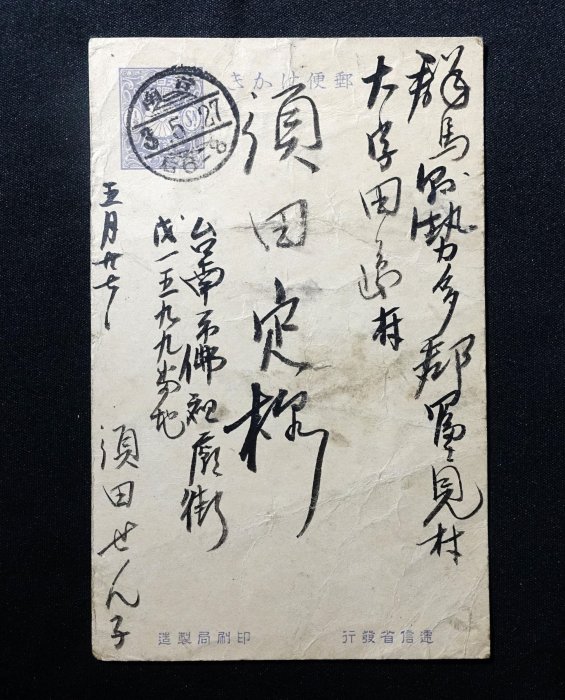 郵便はかき
群馬縣勢多郡冨士見村
大字田島村
須田定様
台南市佛祖廟街
戊一五九九番地
須田せん子
五月廿七
台南
3.5.27
逓信省發行
印刷局製造